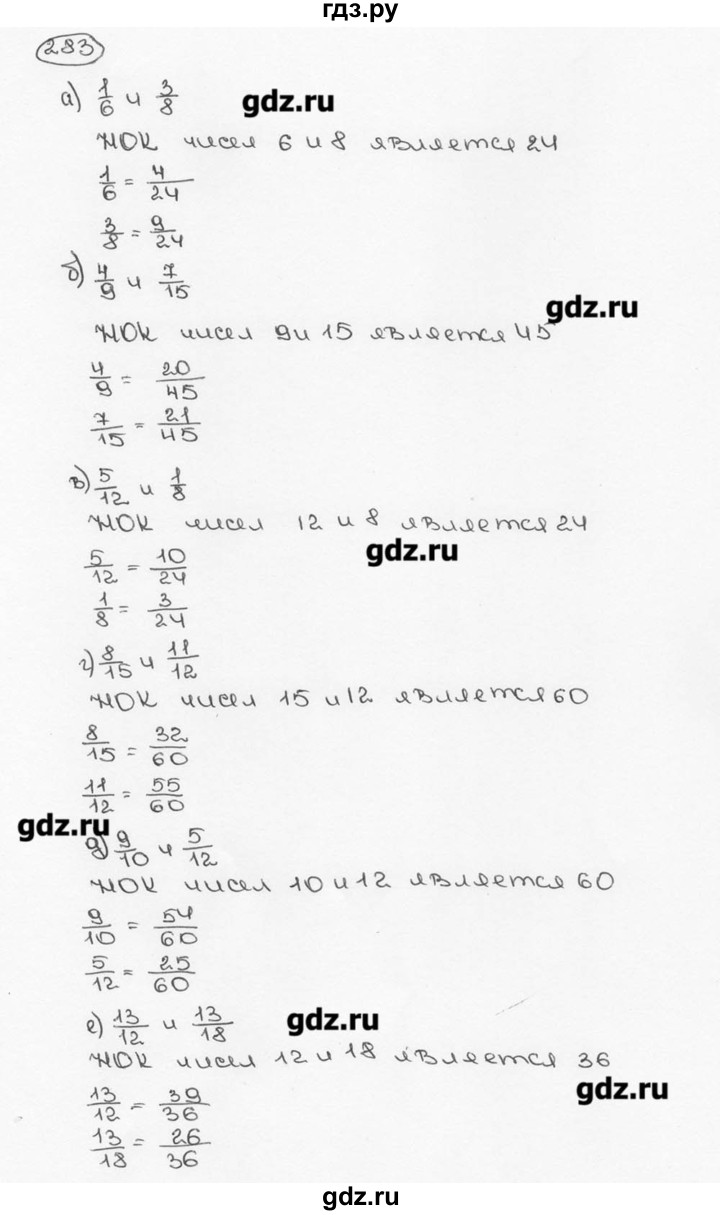 гдз.ру
283
а) 1/6 и 3/8
gdz.ru
НОК чисел 6 и 8 является 24
1/6 = 4/24
3/8 = 9/24
б) 4/9 и 7/15
gdz.ru
НОК чисел 9 и 15 является 45
4/9 = 20/45
7/15 = 21/45
в) 5/12 и 1/8
НОК чисел 12 и 8 является 24
gdz.ru
5/12 = 10/24
1/8 = 3/24
г) 8/15 и 11/12
НОК чисел 15 и 12 является 60
8/15 = 32/60
11/12 = 55/60
gdz.ru
д) 9/10 и 5/12
НОК чисел 10 и 12 является 60
9/10 = 54/60
5/12 = 25/60
е) 13/12 и 13/18
gdz.ru
НОК чисел 12 и 18 является 36
gdz.ru
13/12 = 39/36
13/18 = 26/36
gdz.ru